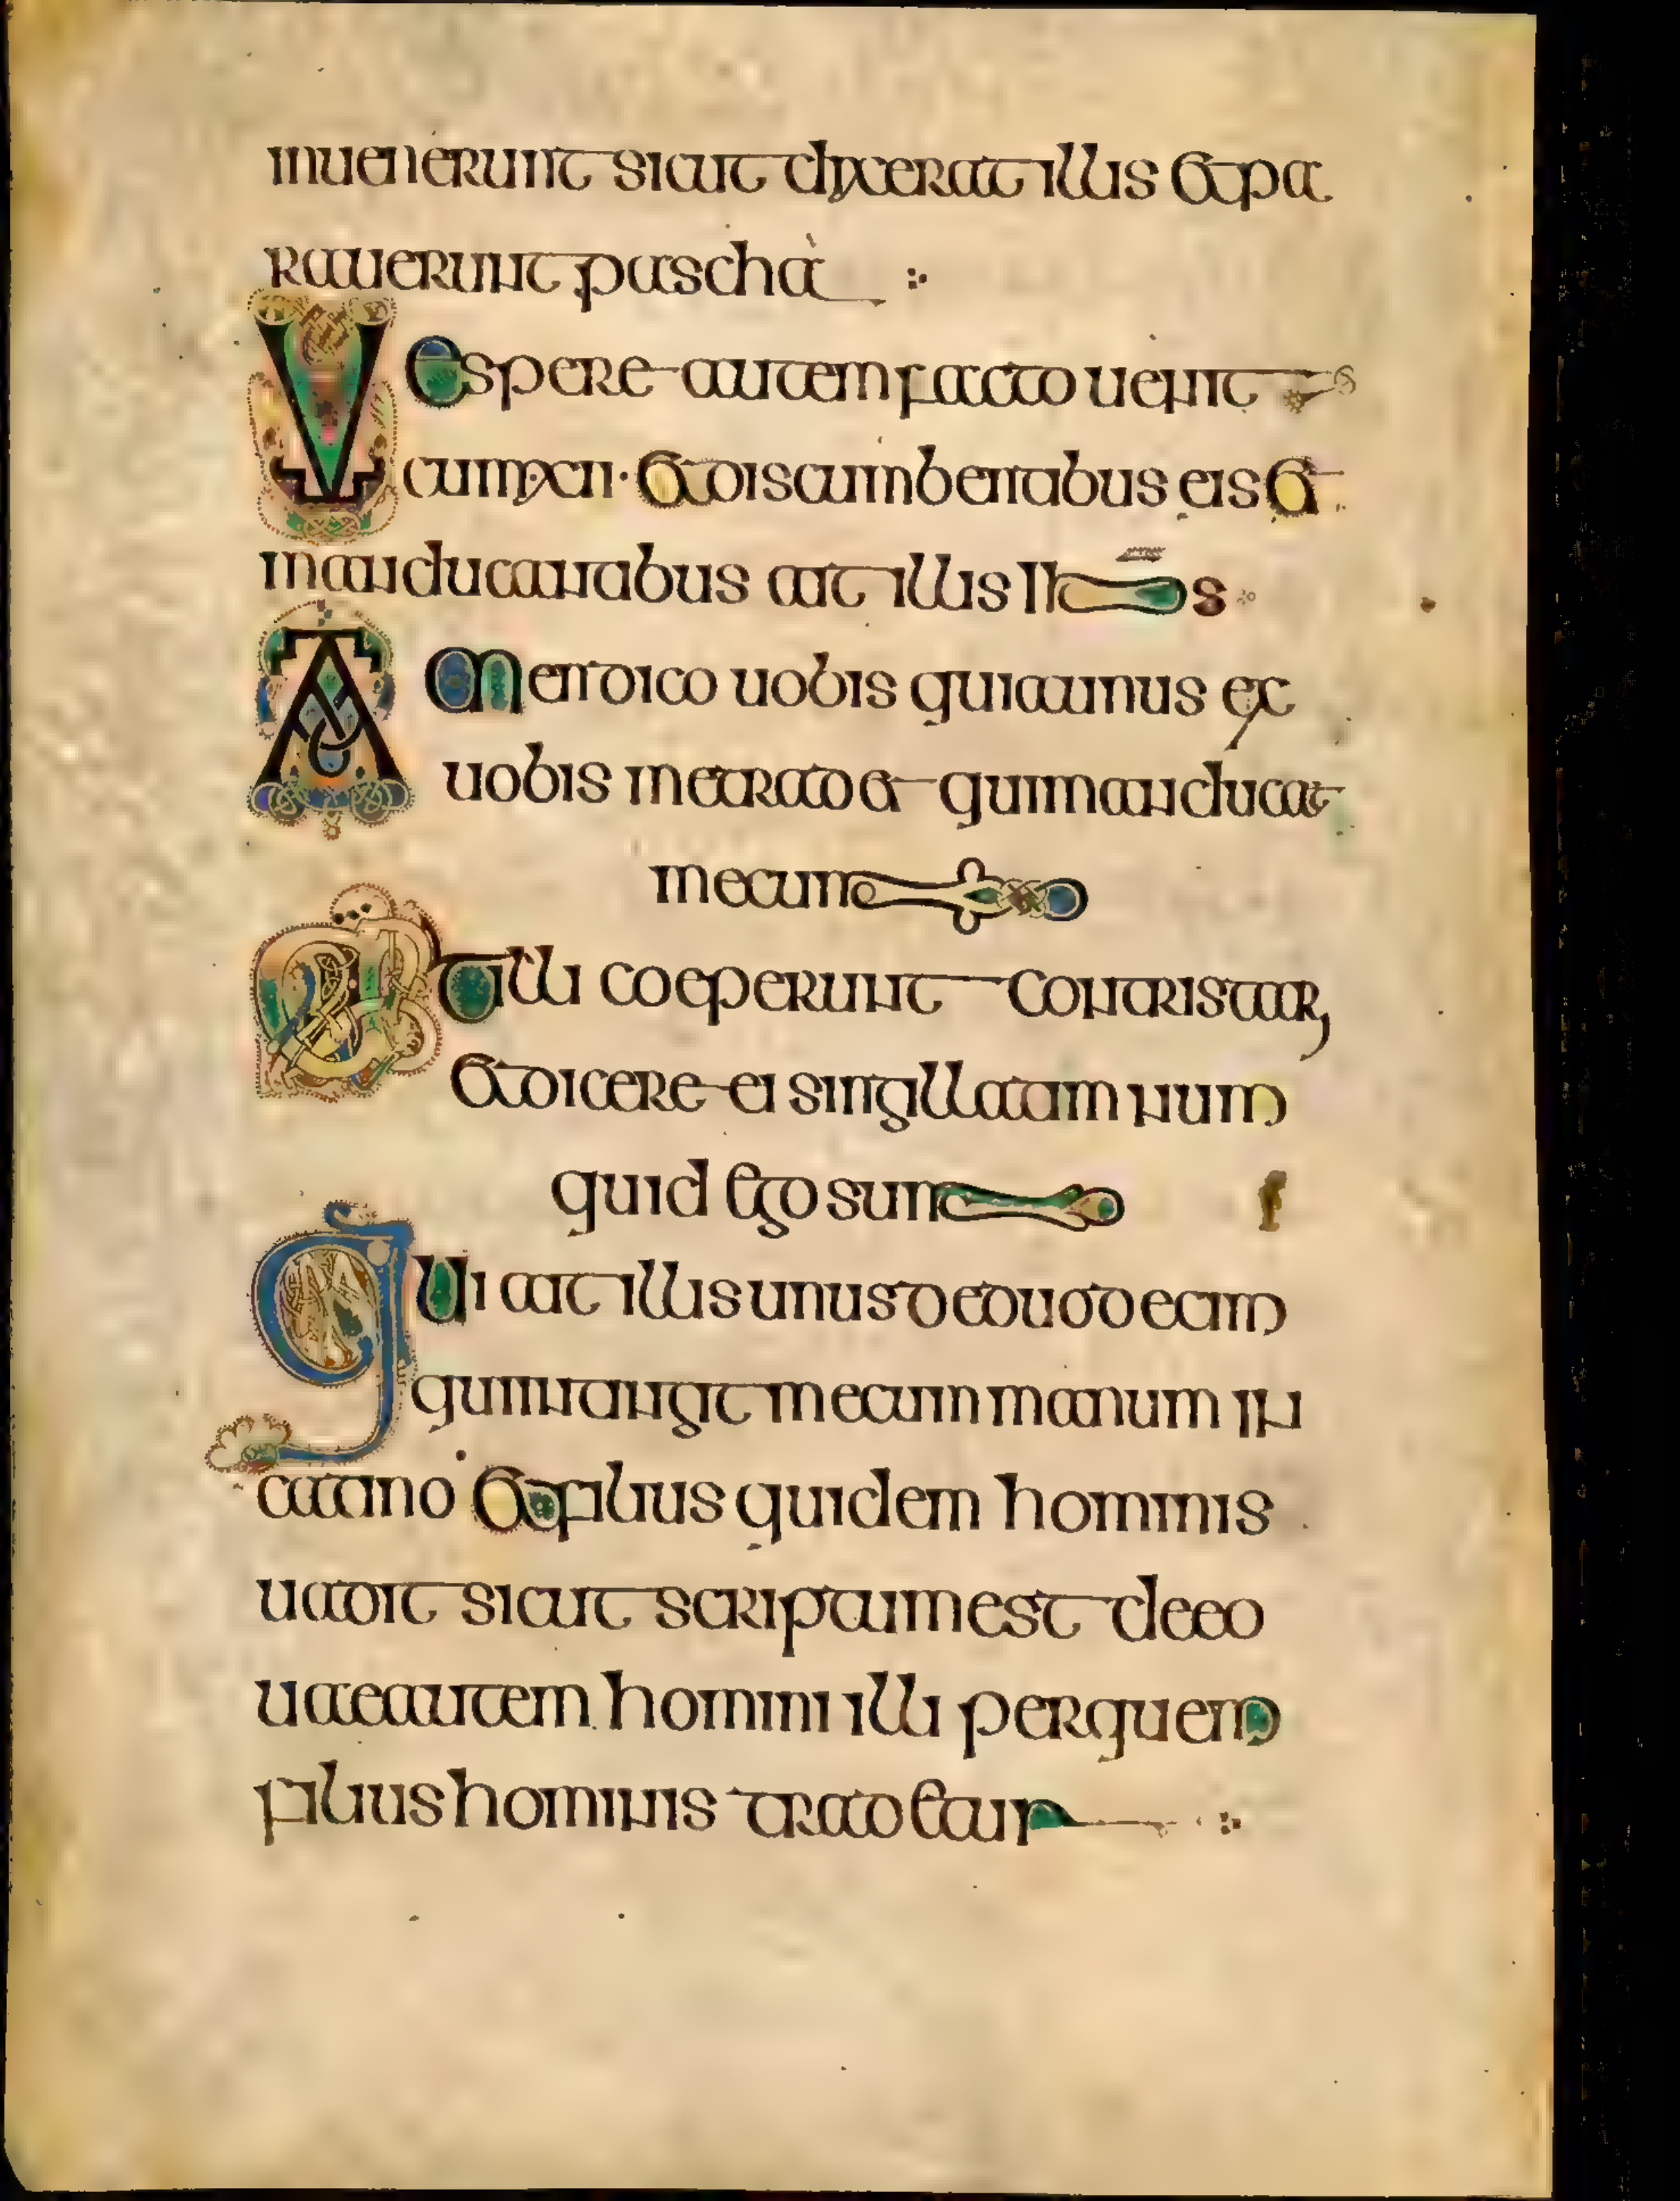 inuenerunt sicut dixerat illis et pa
rauerunt pascha
Vespere autem facto uenit
cum xii · et discumbentibus eis et
manducantibus ait illis ihs
Amen dico uobis quia unus ex
uobis me tradet qui manducat
mecum
At illi coeperunt contristari
et dicere ei singillatim num
quid ego sum
Qui ait illis unus de duodecim
qui intangit mecum manum in
catino et filius quidem hominis
uadit sicut scriptum est de eo
uae autem homini illi per quem
filius hominis tradetur